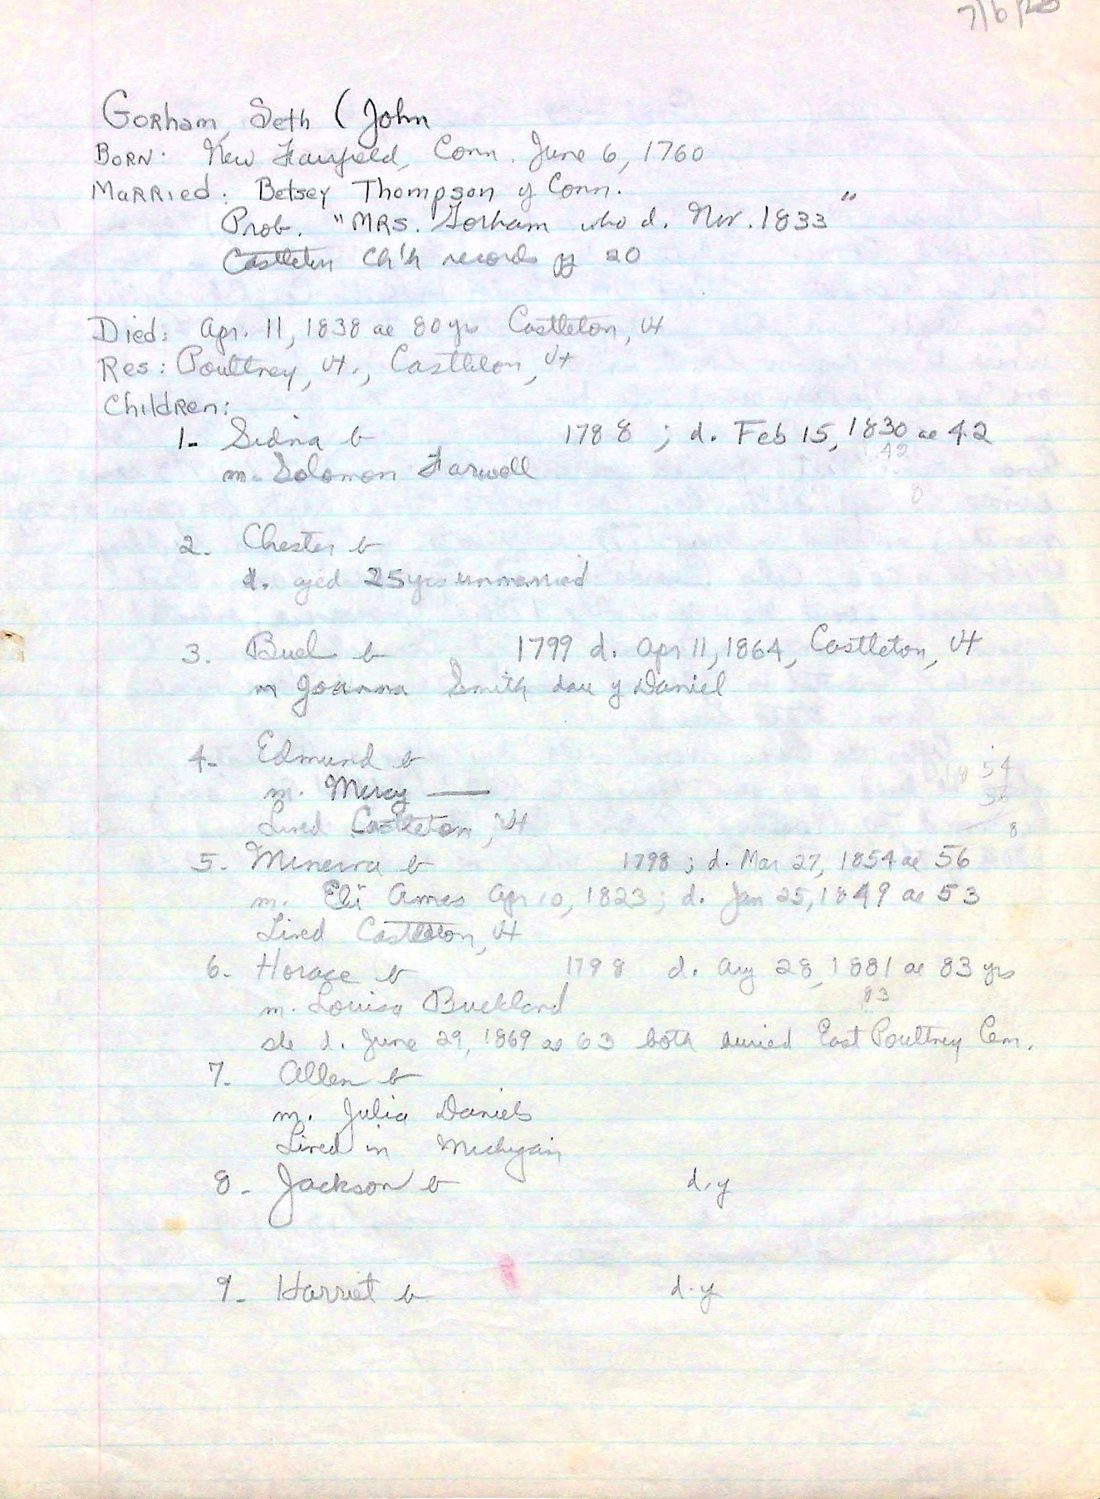 Gorham, Seth (John
Born: New Fairfield, Conn. June 6, 1760
Married: Betsey Thompson of Conn.
Prob. "Mrs. Gorham who d. Nov. 1833"
Castleton Ch'h records pg 20
Died: Apr. 11, 1838 ae 80 yrs Castleton, Vt
Res: Poultney, Vt., Castleton, Vt
Children:
1- Sidna b 1788 ; d. Feb 15, 1830 ae 42
42
m. Solomon Farwell
0
2. Chester b
d. aged 25 yrs unmarried
3. Buel b 1799 d. Apr 11, 1864, Castleton, Vt
m Joanna Smith dau of Daniel
4- Edmund b
54
m. Mercy —
Lived Castleton, Vt
8
5. Minerva b 1798 ; d. Mar 27, 1854 ae 56
m. Eli Ames Apr 10, 1823 ; d. Jan 25, 1849 ae 53
Lived Castleton, Vt
6- Horace b 1798 d. Aug 28, 1881 ae 83 yrs
83
m. Louisa Buckland
she d. June 29, 1869 ae 63 both buried East Poultney Cem.
7. Allen b
m. Julia Daniels
Lived in Michigan
8- Jackson b d.y
9- Harriet b d.y